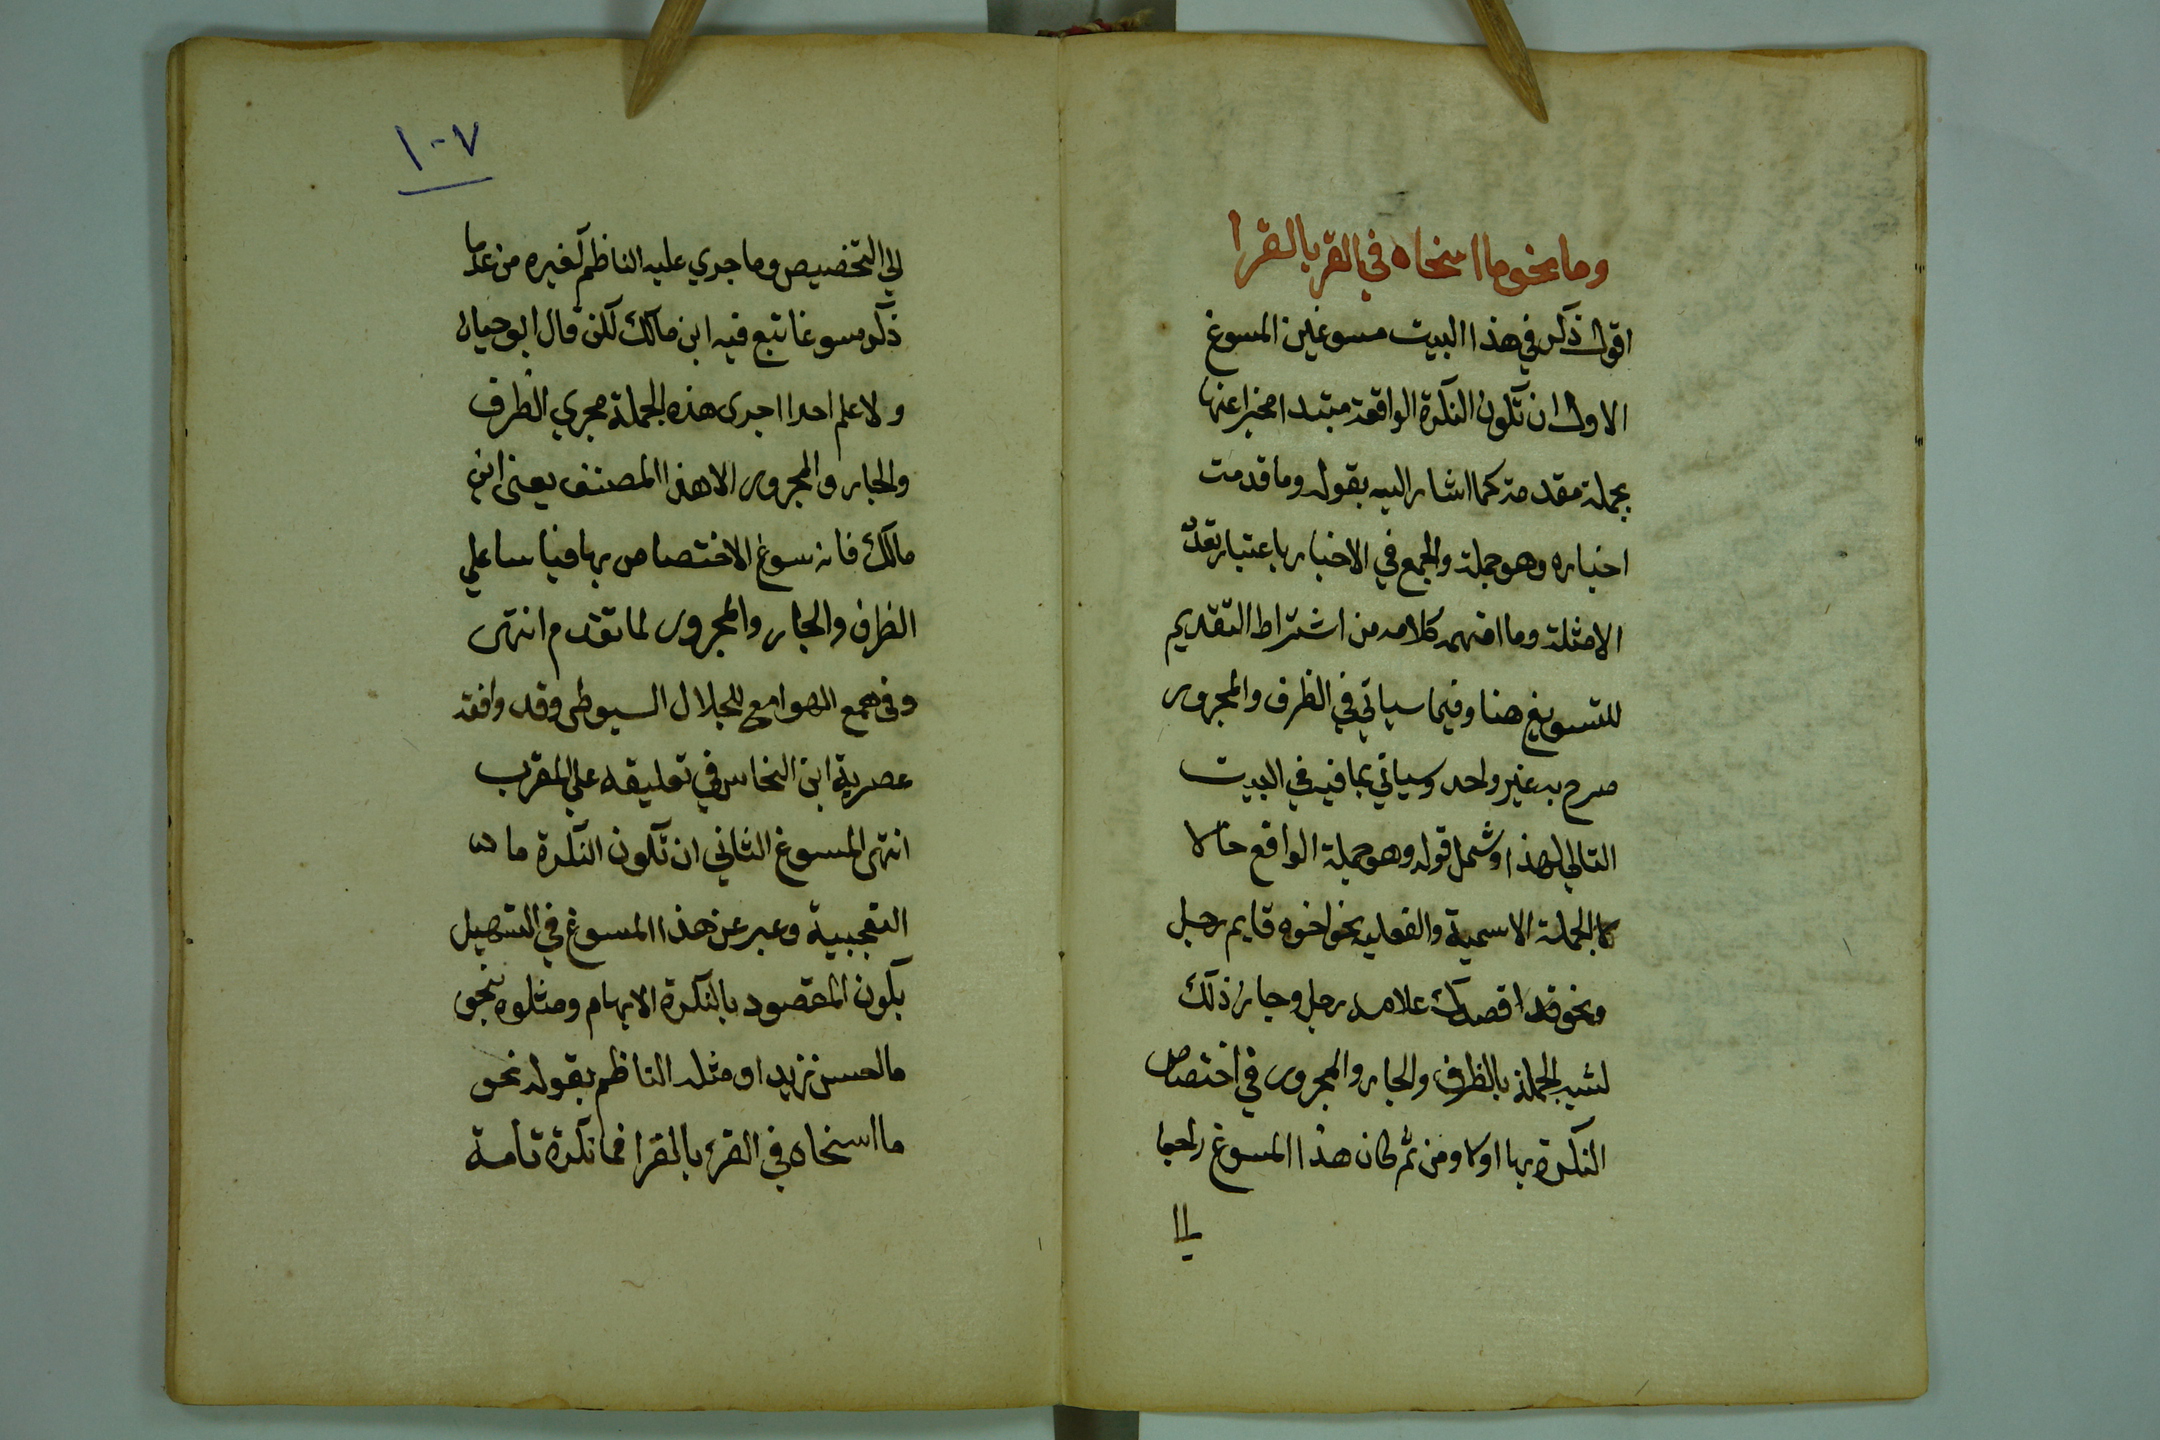 وما نحو ما اسخاه في القر بالقرا
اقول ذكر في هذا البيت مسوغين المسوغ
الاول ان تكون النكرة الواقعة مبتدا مخبرا عنها
بجملة مقدمة كما اشار اليه بقوله وما قدمت
اخباره وهو جملة والجمع في الاخبار باعتبار تعدد
الامثلة وما افهمه كلامه من اشتراط التقديم
للتسويغ هنا وفيما سياتي في الظرف والمجرور
صرح به غير واحد وسياتي بما فيه في البيت
التالي لهذا وشمل قوله وهو جملة الواقع حالا
كالجملة الاسمية والفعلية نحو اخوه قايم رجل
ونحو قد اقصدك غلامه رجل وجاز ذلك
لشبه الجملة بالظرف والجار والمجرور في اختصاص
النكرة بها اولا ومن ثم كان هذا المسوغ راجعا
الي
١٠٧
الي التخصيص وما جري عليه الناظم كغيره من عد ما
ذكر مسوغا تبع فيه ابن مالك لكن قال ابو حيان
ولا علم احدا اجرى هذه الجملة مجري الظرف
والجار والمجرور الا هذا المصنف يعنى ابن
مالك فانه سوغ الاختصاص بها قياسا علي
الظرف والجار والمجرور لما تقدم انتهى
وفي همع الهوامع للجلال السيوطى وقد وافقه
عصرية ابن النحاس في تعليقه علي المقرب
انتهى المسوغ الثاني ان تكون النكرة ما
التعجبية وعبر عن هذا المسوغ في التسهيل
بكون المقصود بالنكرة الابهام ومثلوه بنحو
ما احسن زيدا ومثله الناظم بقوله نحو
ما اسخاه في القر بالقرا فما نكرة تامة